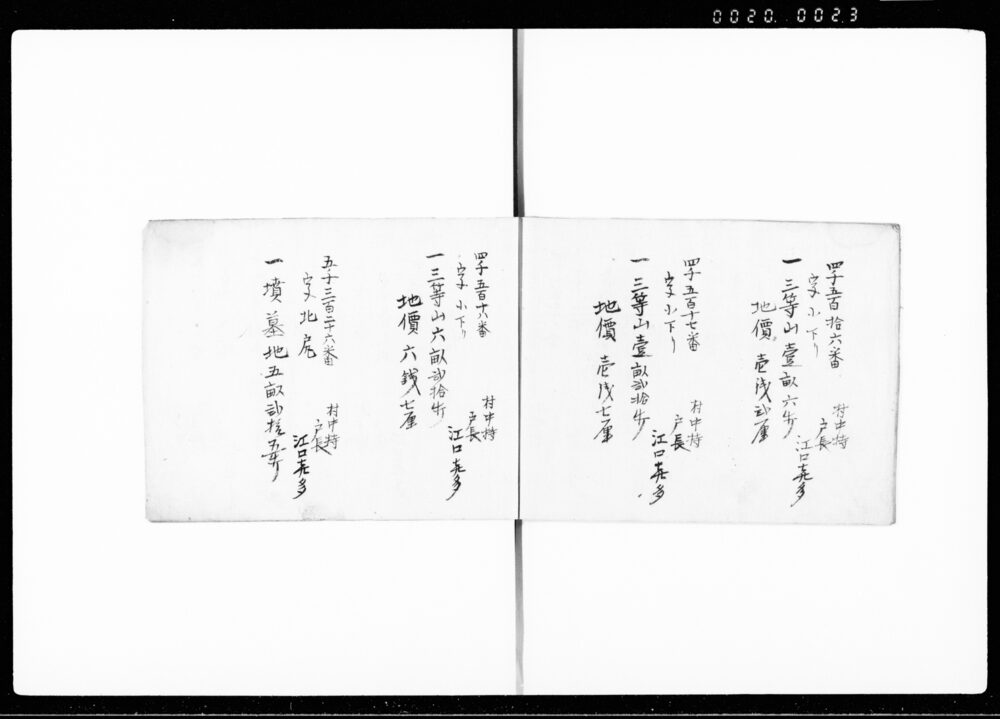 0020 0023
四千五百拾六番
字小下り
一三等山壹畝六歩
地價壱銭弐厘
村中持
戸長
江口喜多
四千五百十七番
字小下り
一三等山壹畝弐拾歩
地價壱銭七厘
村中持
戸長
江口喜多
四千五百十八番
字小下り
一三等山六畝弐拾歩
地價六銭七厘
村中持
戸長
江口喜多
五千三百二十六番
字北尻
一墳墓地五畝弐拾五歩
村中持
戸長
江口喜多